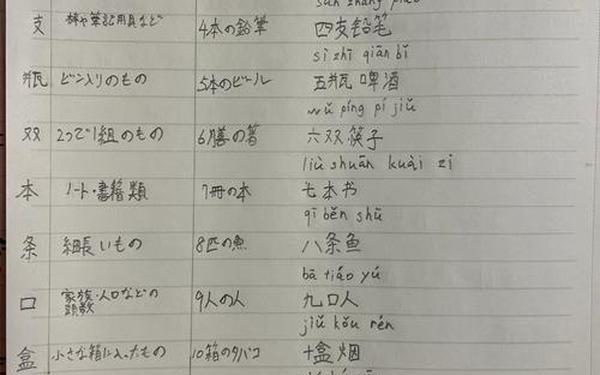 sān zhāng piào
支 棒や筆記用具など 4本の鉛筆 四支铅笔
sì zhī qiān bǐ
瓶 ビン入りのもの 5本のビール 五瓶啤酒
wǔ píng pí jiǔ
双 2つで1組のもの 6膳の箸 六双筷子
liù shuān kuài zi
本 ノート・書籍類 7冊の本 七本书
qī běn shū
条 細長いもの 8匹の魚 八条鱼
bā tiáo yú
口 家族・人口などの頭数 9人の人 九口人
jiǔ kǒu rén
盒 小さな箱に入ったもの 10箱のタバコ 十盒烟